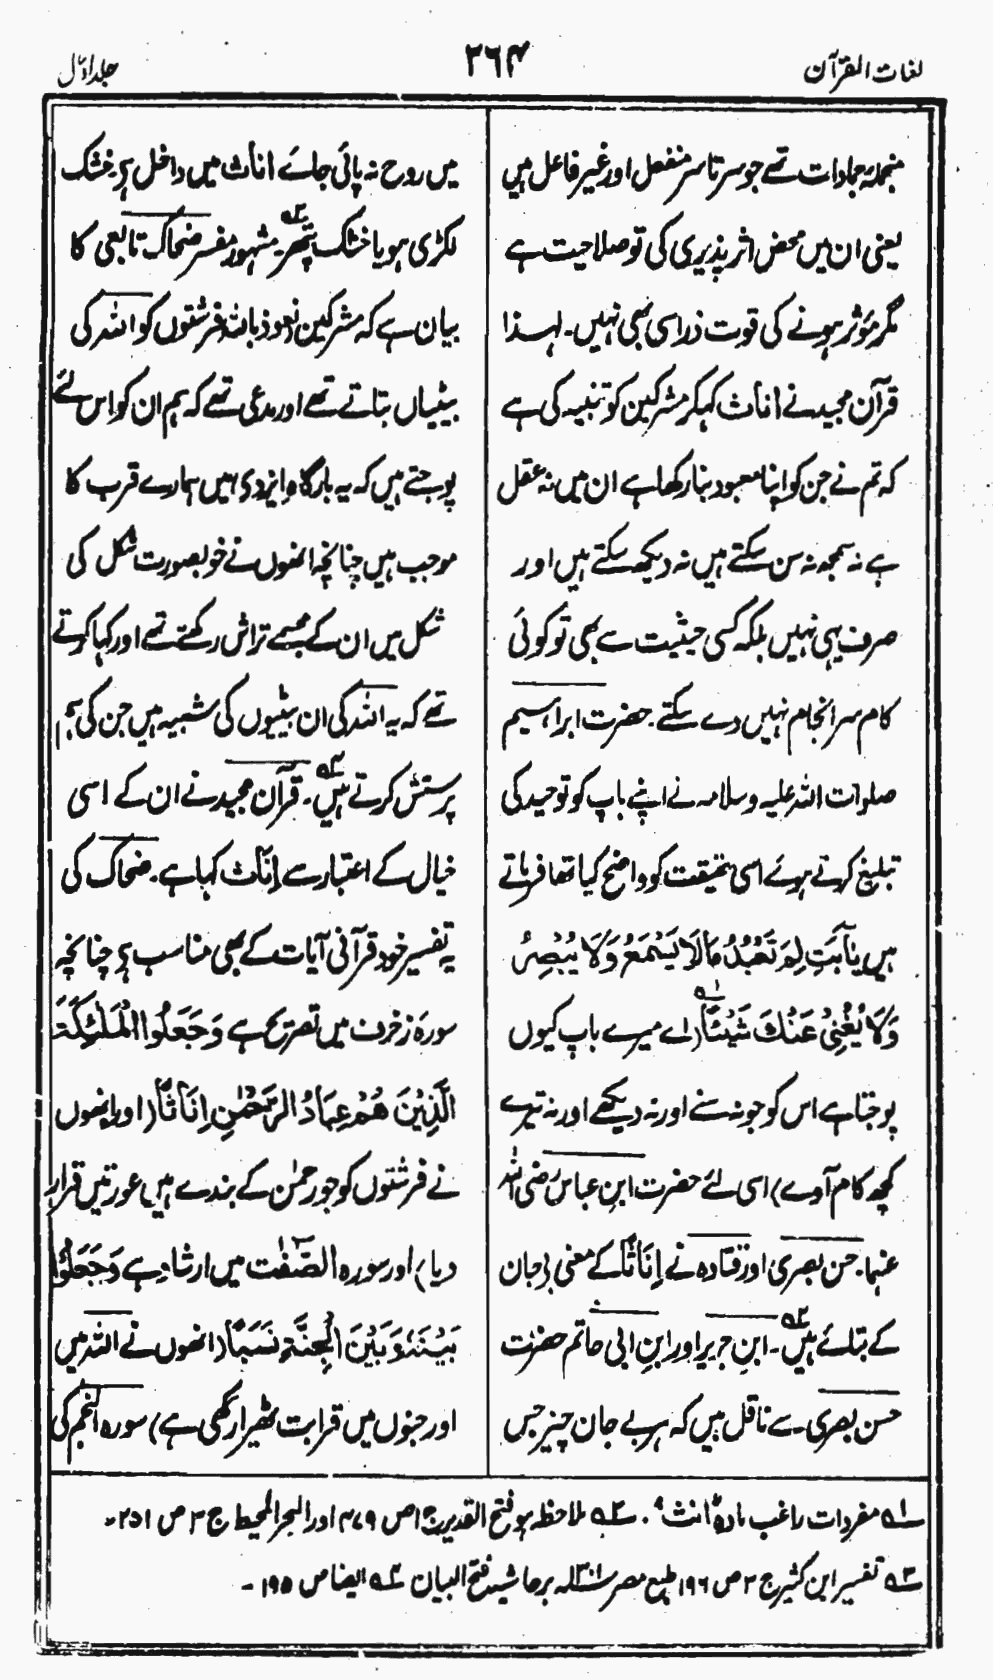 لغات القرآن
۲۶۴
جلد اوّل
منجملہ جمادات تھے جو سرتاسر منفعل اور غیر فاعل ہیں
یعنی ان میں محض اثر پذیری کی تو صلاحیت ہے
مگر مؤثر ہونے کی قوت ذرا سی بھی نہیں۔ لہٰذا
قرآن مجید نے اناث کہکر مشرکین کو تنبیہ کی ہے
کہ تم نے جن کو اپنا معبود بنا رکھا ہے ان میں نہ عقل
ہے نہ سمجھ نہ سن سکتے ہیں نہ دیکھ سکتے ہیں اور
صرف یہی نہیں بلکہ کسی حیثیت سے بھی تو کوئی
کام سرانجام نہیں دے سکتے۔ حضرت ابراہیم
صلوات اللہ علیہ وسلامہ نے اپنے باپ کو توحید کی
تبلیغ کرتے ہوئے اسی حقیقت کو واضح کیا تھا فرماتے
ہیں یٰۤاَبَتِ لِمَ تَعْبُدُ مَا لَا یَسْمَعُ وَلَا یُبْصِرُ
وَلَا یُغْنِیْ عَنْكَ شَیْئًا ۱ (اے میرے باپ کیوں
پوجتا ہے اس کو جو نہ سنے اور نہ دیکھے اور نہ تیرے
کچھ کام آوے) اسی لئے حضرت ابن عباس رضی اللہ
عنہما۔ حسن بصری اور قتادہ نے اِنَاثًا کے معنی بےجان
کے بتلائے ہیں ۲۔ ابن جریر اور ابن ابی حاتم حضرت
حسن بصری۔ سے ناقل ہیں کہ ہر بے جان چیز جس
میں روح نہ پائی جائے اناث میں داخل ہے خشک
لکڑی ہو یا خشک پتھر ۳۔ مشہور مفسر ضحاک تابعی کا
بیان ہے کہ مشرکین (نعوذ باللہ) فرشتوں کو اللہ کی
بیٹیاں بتاتے تھے اور مدعی تھے کہ ہم ان کو اس لئے
پوجتے ہیں کہ یہ بارگاہ ایزدی میں ہمارے قرب کا
موجب ہیں چنانچہ انھوں نے خوبصورت شکل کی
شکل میں ان کے مجسمے تراش رکھے تھے اور کہا کرتے
تھے کہ یہ اللہ کی ان بیٹیوں کی شبیہ ہیں جن کی ہم
پرستش کرتے ہیں ۴۔ قرآن مجید نے ان کے اسی
خیال کے اعتبار سے اِنَاث کہا ہے۔ ضحاک کی
یہ تفسیر خود قرآنی آیات کے بھی مناسب ہے چنانچہ
سورۂ زخرف میں تصریح ہے وَجَعَلُوا الْمَلٰٓئِكَةَ
الَّذِیْنَ هُمْ عِبَادُ الرَّحْمٰنِ اِنَاثًا (اور انھوں
نے فرشتوں کو جو رحمٰن کے بندے ہیں عورتیں قرار
دیا) اور سورہ الصّٰٓفّٰت میں ارشاد ہے وَجَعَلُوْا
بَیْنَهٗ وَبَیْنَ الْجِنَّةِ نَسَبًا (انھوں نے اللہ میں
اور جنوں میں قرابت ٹھیرا رکھی ہے) سورہ النجم کی
۱ مفردات راغب مادہ "انث"۔ ۲ ملاحظہ ہو فتح القدیر ج ۱ ص ۴۷۹ اور البحر المحیط ج ۳ ص ۲۵۱۔
۳ تفسیر ابن کثیر ج ۳ ص ۱۹۶ طبع مصر ۱۳۰۱ھ برحاشیہ فتح البیان ۴ ایضاً ص ۱۹۵۔